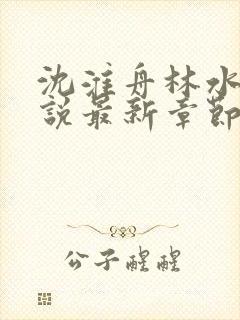 沈淮舟林水
說最新章節
公子醒醒